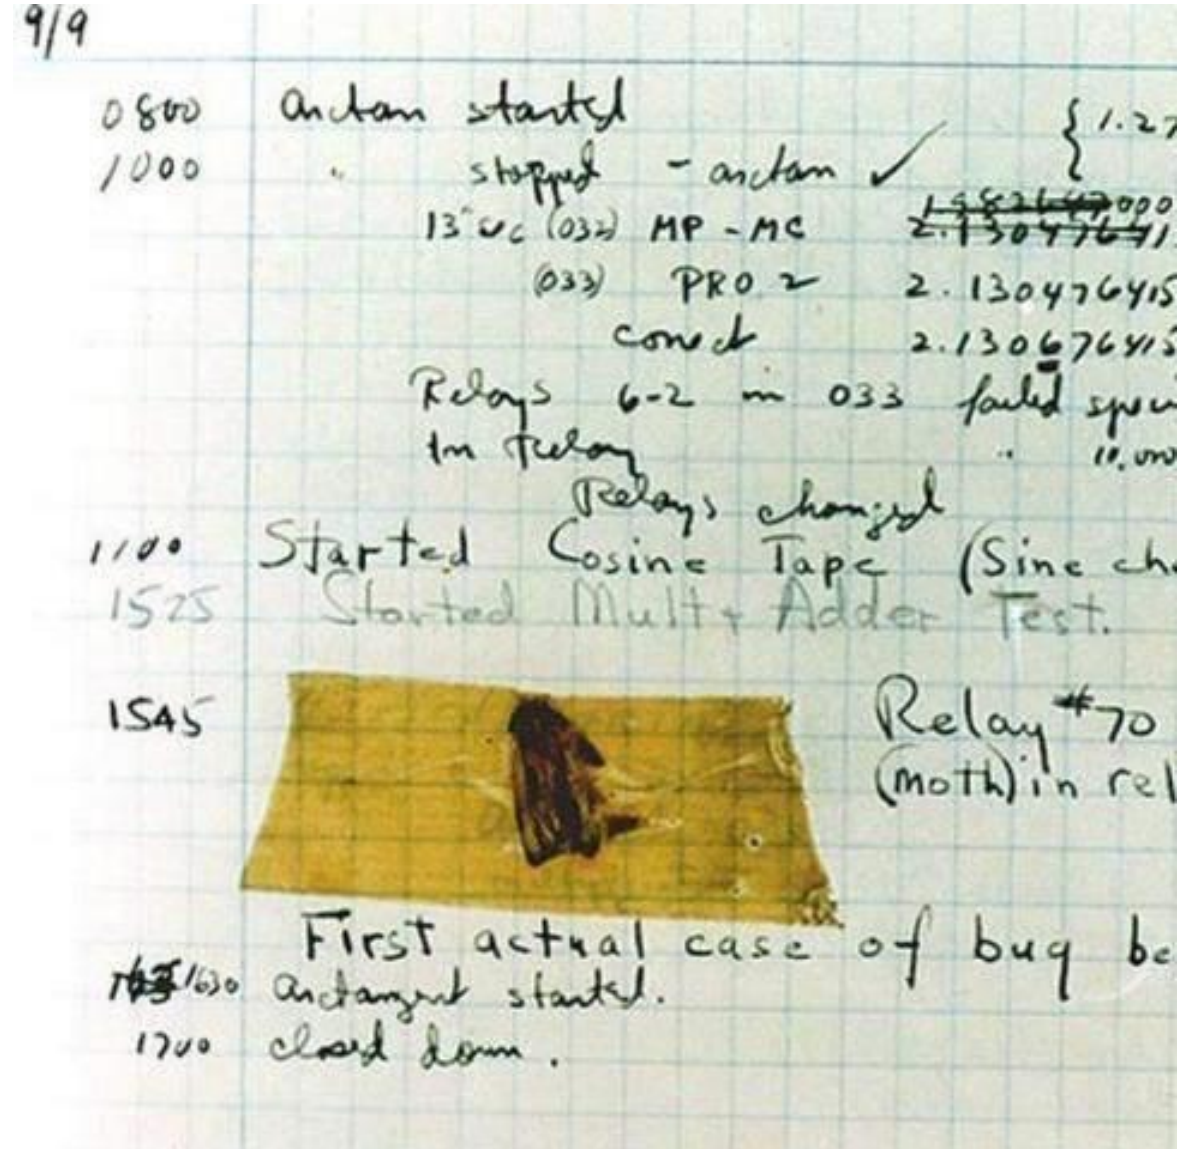 9/9
0800 arctan started { 1.27
1000 " stopped - arctan ✓
13" uc (032) MP - MC 2.13047641
(033) PRO 2 2.130476415
conect 2.130676415
Relays 6-2 in 033 failed
In Relay " 10,000
Relays changed
1100 Started Cosine Tape (Sine che
1525 Started Mult+ Adder Test.
1545 Relay #70
(moth) in rel
First actual case of bug be
1630 arctangent started.
1700 closed down.